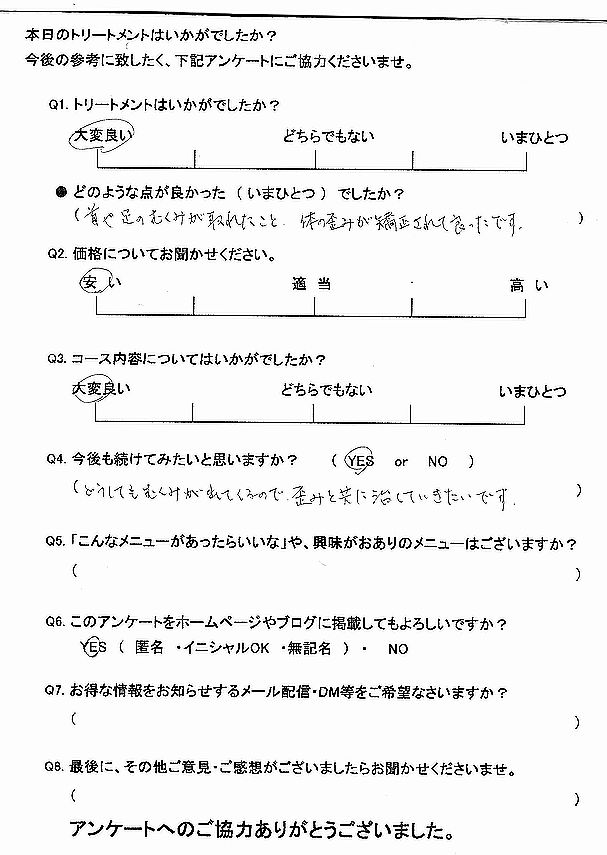 本日のトリートメントはいかがでしたか？
今後の参考に致したく、下記アンケートにご協力くださいませ。
Q1. トリートメントはいかがでしたか？
大変良い どちらでもない いまひとつ
● どのような点が良かった （ いまひとつ ） でしたか？
（首や足のむくみが取れたこと、体の歪みが矯正されて良かったです。 ）
Q2. 価格についてお聞かせください。
安い 適当 高い
Q3. コース内容についてはいかがでしたか？
大変良い どちらでもない いまひとつ
Q4. 今後も続けてみたいと思いますか？ （ YES or NO ）
（どうしてもむくみがでてくるので、歪みと共に治していきたいです。 ）
Q5. 「こんなメニューがあったらいいな」や、興味がおありのメニューはございますか？
（ ）
Q6. このアンケートをホームページやブログに掲載してもよろしいですか？
YES （ 匿名 ・イニシャルOK ・無記名 ）・ NO
Q7. お得な情報をお知らせするメール配信・DM等をご希望なさいますか？
（ ）
Q8. 最後に、その他ご意見・ご感想がございましたらお聞かせくださいませ。
（ ）
アンケートへのご協力ありがとうございました。